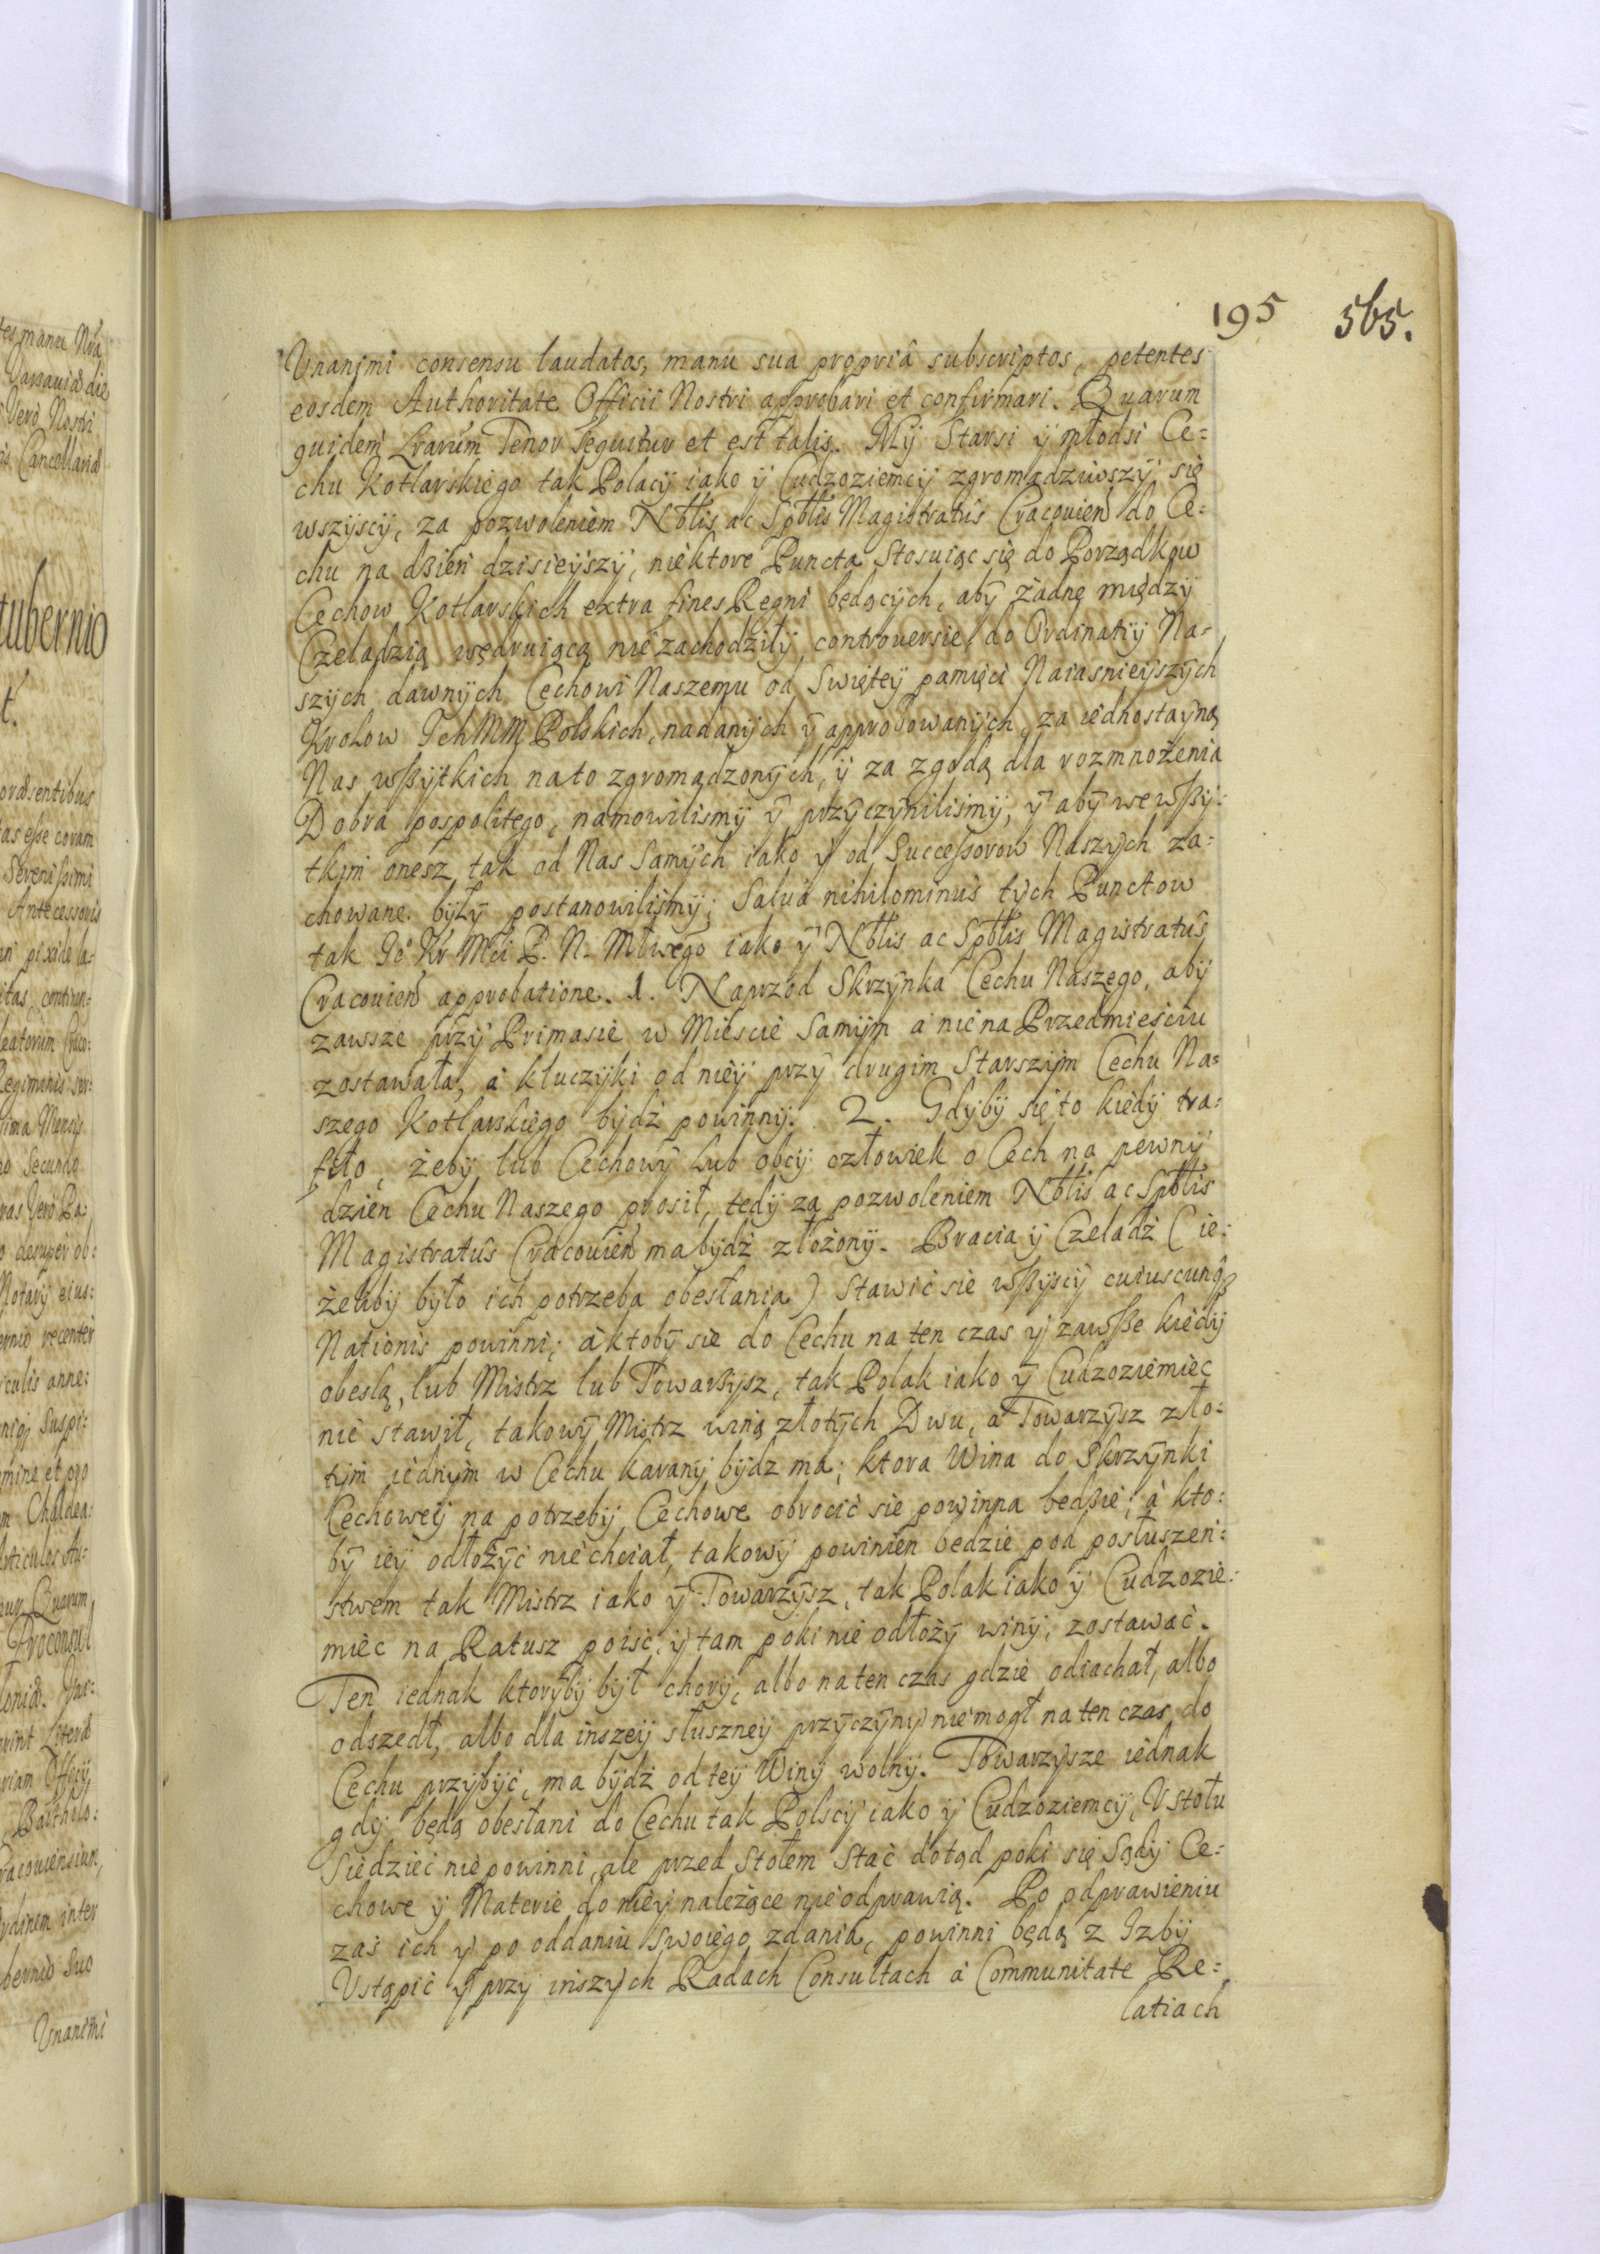 195 565.
Unanimi consensu laudatas, manu sua propriâ subscriptos, petentes
eosdem Authoritate Officii Nostri approbari et confirmari. Quarum
quidem Lrarum Tenor sequitur et est talis. My Starsi y młodsi Ce=
chu Kotlarskiego tak Polacy iako y Cudzoziemcy zgromadziwszy się
wszyscy, za pozwoleniem Nblis ac Spblis Magistratûs Cracovien do Ce=
chu na dzien dzisieyszy, niektore Puncta stosuiąc się do Porządkow
Cechow Kotlarskich extra fines Regni będących, aby żadne między
Czeladzią wędruiącą nie zachodziły controversie, do Ordinatiy Na=
szych dawnych Cechowi Naszemu od Swiętey pamięci Naiasnieyszych
Krolow IchMM Polskich, nadanych y approbowanych, za iednostayną
Nas wszytkich na to zgromadzonych, y za zgodą dla rozmnożenia
Dobra pospolitego, namowilismy y przyczynilismy, y aby we wszy=
tkim onesz tak od Nas Samych iako y od Successorow Naszych za=
chowane były postanowilismy; Salvâ nihilominus tych Punctow
tak Ie° Kr Mći P. N. Młwego iako y Nblis ac Spblis Magistratûs
Cracovien approbatione. 1. Naprzod Skrzynka Cechu Naszego, aby
zawsze przy Primasie w Miescie Samym a nie na Przedmieściu
zostawała, á kluczyki od niey przy drugim Starszym Cechu Na=
szego Kotlarskiego bydź powinny. 2. Gdyby się to kiedy tra=
fiło, żeby lub Cechowy lub obcy człowiek o Cech na pewny
dzien Cechu Naszego prosił, tedy za pozwoleniem Nblis ac Spblis
Magistratûs Cracovien ma bydź złożony. Bracia y Czeladź (ie=
żeliby było ich potrzeba obesłania) Stawić sie wszyscy cuiuscunq
Nationis powinni; á ktoby sie do Cechu na ten czas y zawsze kiedy
obeslą, lub Mistrz lub Towarzysz, tak Polak iako y Cudzoziemiec
nie stawił, takowy Mistrz winą złotych Dwu, a Towarzysz zło=
tym iednym w Cechu karany bydz ma; ktora Wina do Skrzynki
Cechowey na potrzeby Cechowe obrocić sie powinna bedzie; á kto=
by iey odłożyć nie chciał, takowy powinien bedzie pod posłuszen=
stwem tak Mistrz iako y Towarzysz, tak Polak iako y Cudzozie=
miec na Ratusz poiść, y tam poki nie odłoży winy, zostawać.
Ten iednak ktoryby był chory, albo na ten czas gdzie odiachał, albo
odszedł, albo dla inszey słuszney przyczyny nie mogł na ten czas do
Cechu przybyć, ma bydź od tey Winy wolny. Towarzysze iednak
gdy będą obesłani do Cechu tak Polscy iako y Cudzoziemcy, U stołu
Siedzieć nie powinni, ale przed Stołem Stać dotąd poki się Sądy Ce=
chowe y Materie do niey należące nie odprawią. Po odprawieniu
zaś ich y po oddaniu Swoiego zdania, powinni będą z Izby
Ustąpić y przy inszych Radach Consultach á Communitate Re=
latiach